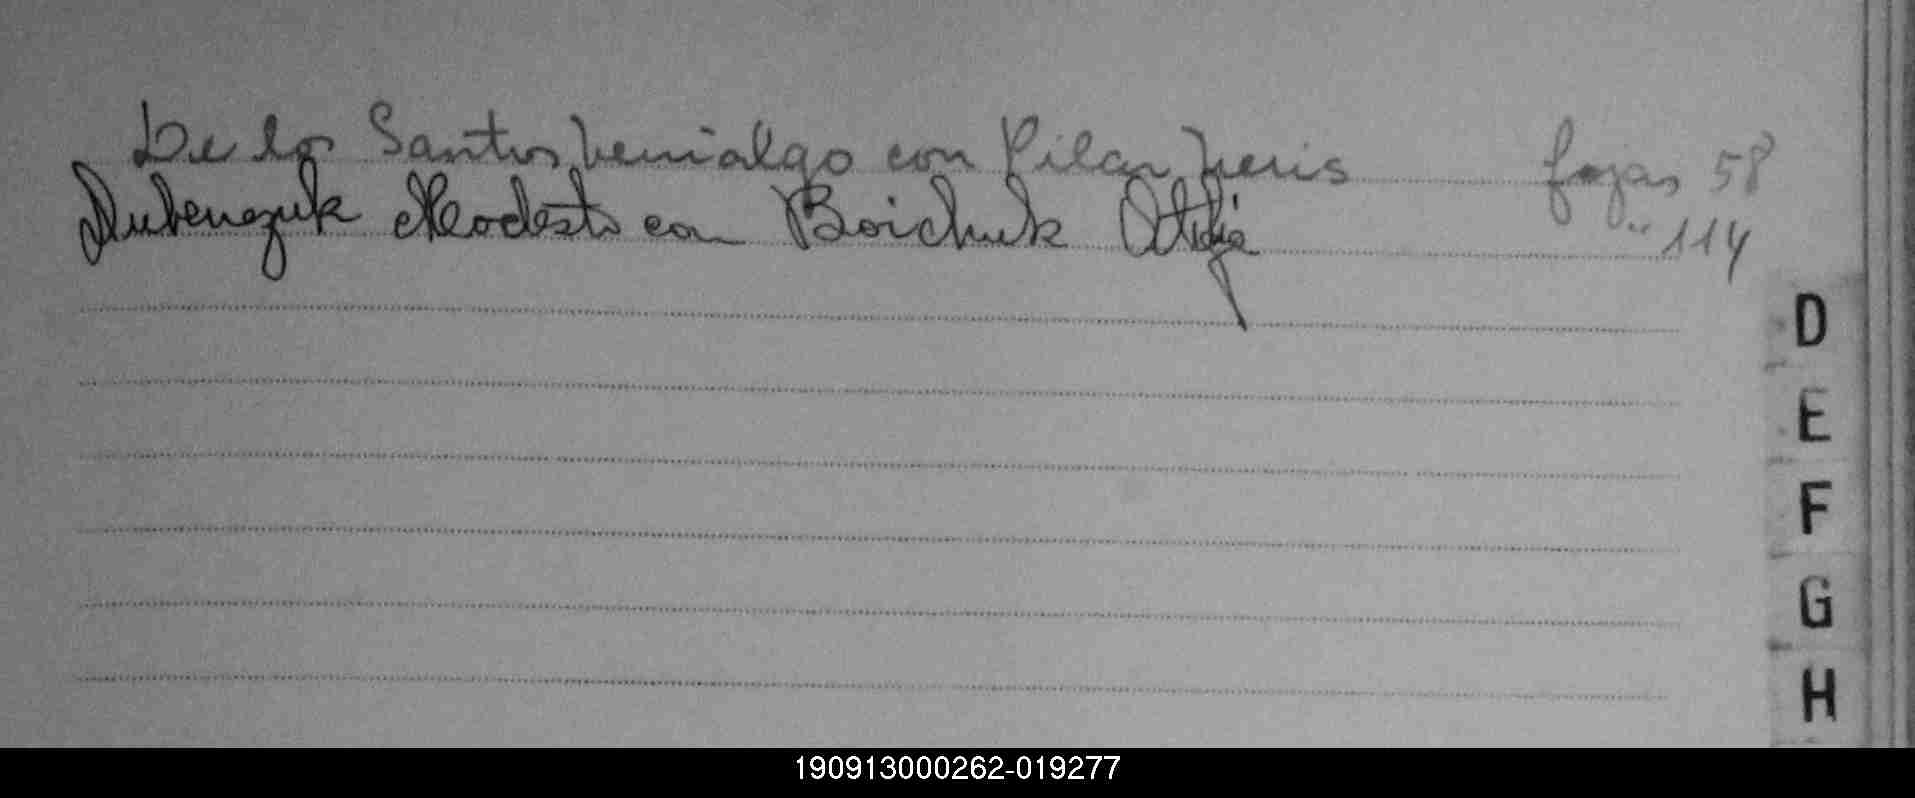 De los Santos Venialgo con Pilar Jeris fojas 58
Dubenezuk Modesto con Boichuk Otilia " 114
D
E
F
G
H
190913000262-019277